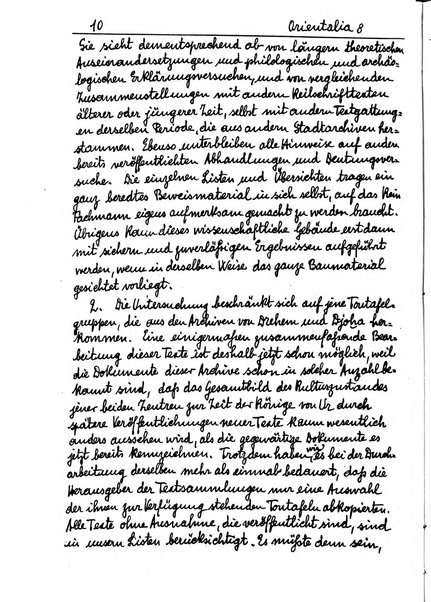 10 Orientalia 8
Sie sieht dementsprechend ab von längern theoretischen
Auseinandersetzungen und philologischen und archäo-
logischen Erklärungsversuchen, und von vergleichenden
Zusammenstellungen mit andern Keilschrifttexten
älterer oder jüngerer Zeit, selbst mit andern Textgattung-
en derselben Periode, die aus andern Stadtarchiven her-
stammen. Ebenso unterbleiben alle Hinweise auf andere
bereits veröffentlichten Abhandlungen und Deutungsver-
suche. Die einzelnen Listen und Übersichten tragen ein
ganz beredtes Beweismaterial in sich selbst, auf das kein
Fachmann eigens aufmerksam gemacht zu werden braucht.
Übrigens kann dieses wissenschaftliche Gebäude erst dann
mit sichern und zuverlässigen Ergebnissen aufgeführt
werden, wenn in derselben Weise das ganze Baumaterial
gesichtet vorliegt.
2. Die Untersuchung beschränkt sich auf jene Tontafel-
gruppen, die aus den Archiven von Drehem und Djoha her-
kommen. Eine einigermaßen zusammenfassende Bear-
beitung dieser Texte ist deshalb jetzt schon möglich, weil
die Dokumente dieser Archive schon in solcher Anzahl be-
kannt sind, daß das Gesamtbild des Kulturzustandes
jener beiden Zentren zur Zeit der Könige von Ur durch
spätere Veröffentlichungen neuer Texte kaum wesentlich
anders aussehen wird, als die gegenwärtige Dokumente es
jetzt bereits kennzeichnen. Trotzdem haben wir es bei der Durch-
arbeitung derselben mehr als einmal bedauert, daß die
Herausgeber der Textsammlungen nur eine Auswahl
der ihnen zur Verfügung stehenden Tontafeln abkopierten.
Alle Texte ohne Ausnahme, die veröffentlicht sind, sind
in unsern Listen berücksichtigt. Es müßte denn sein,